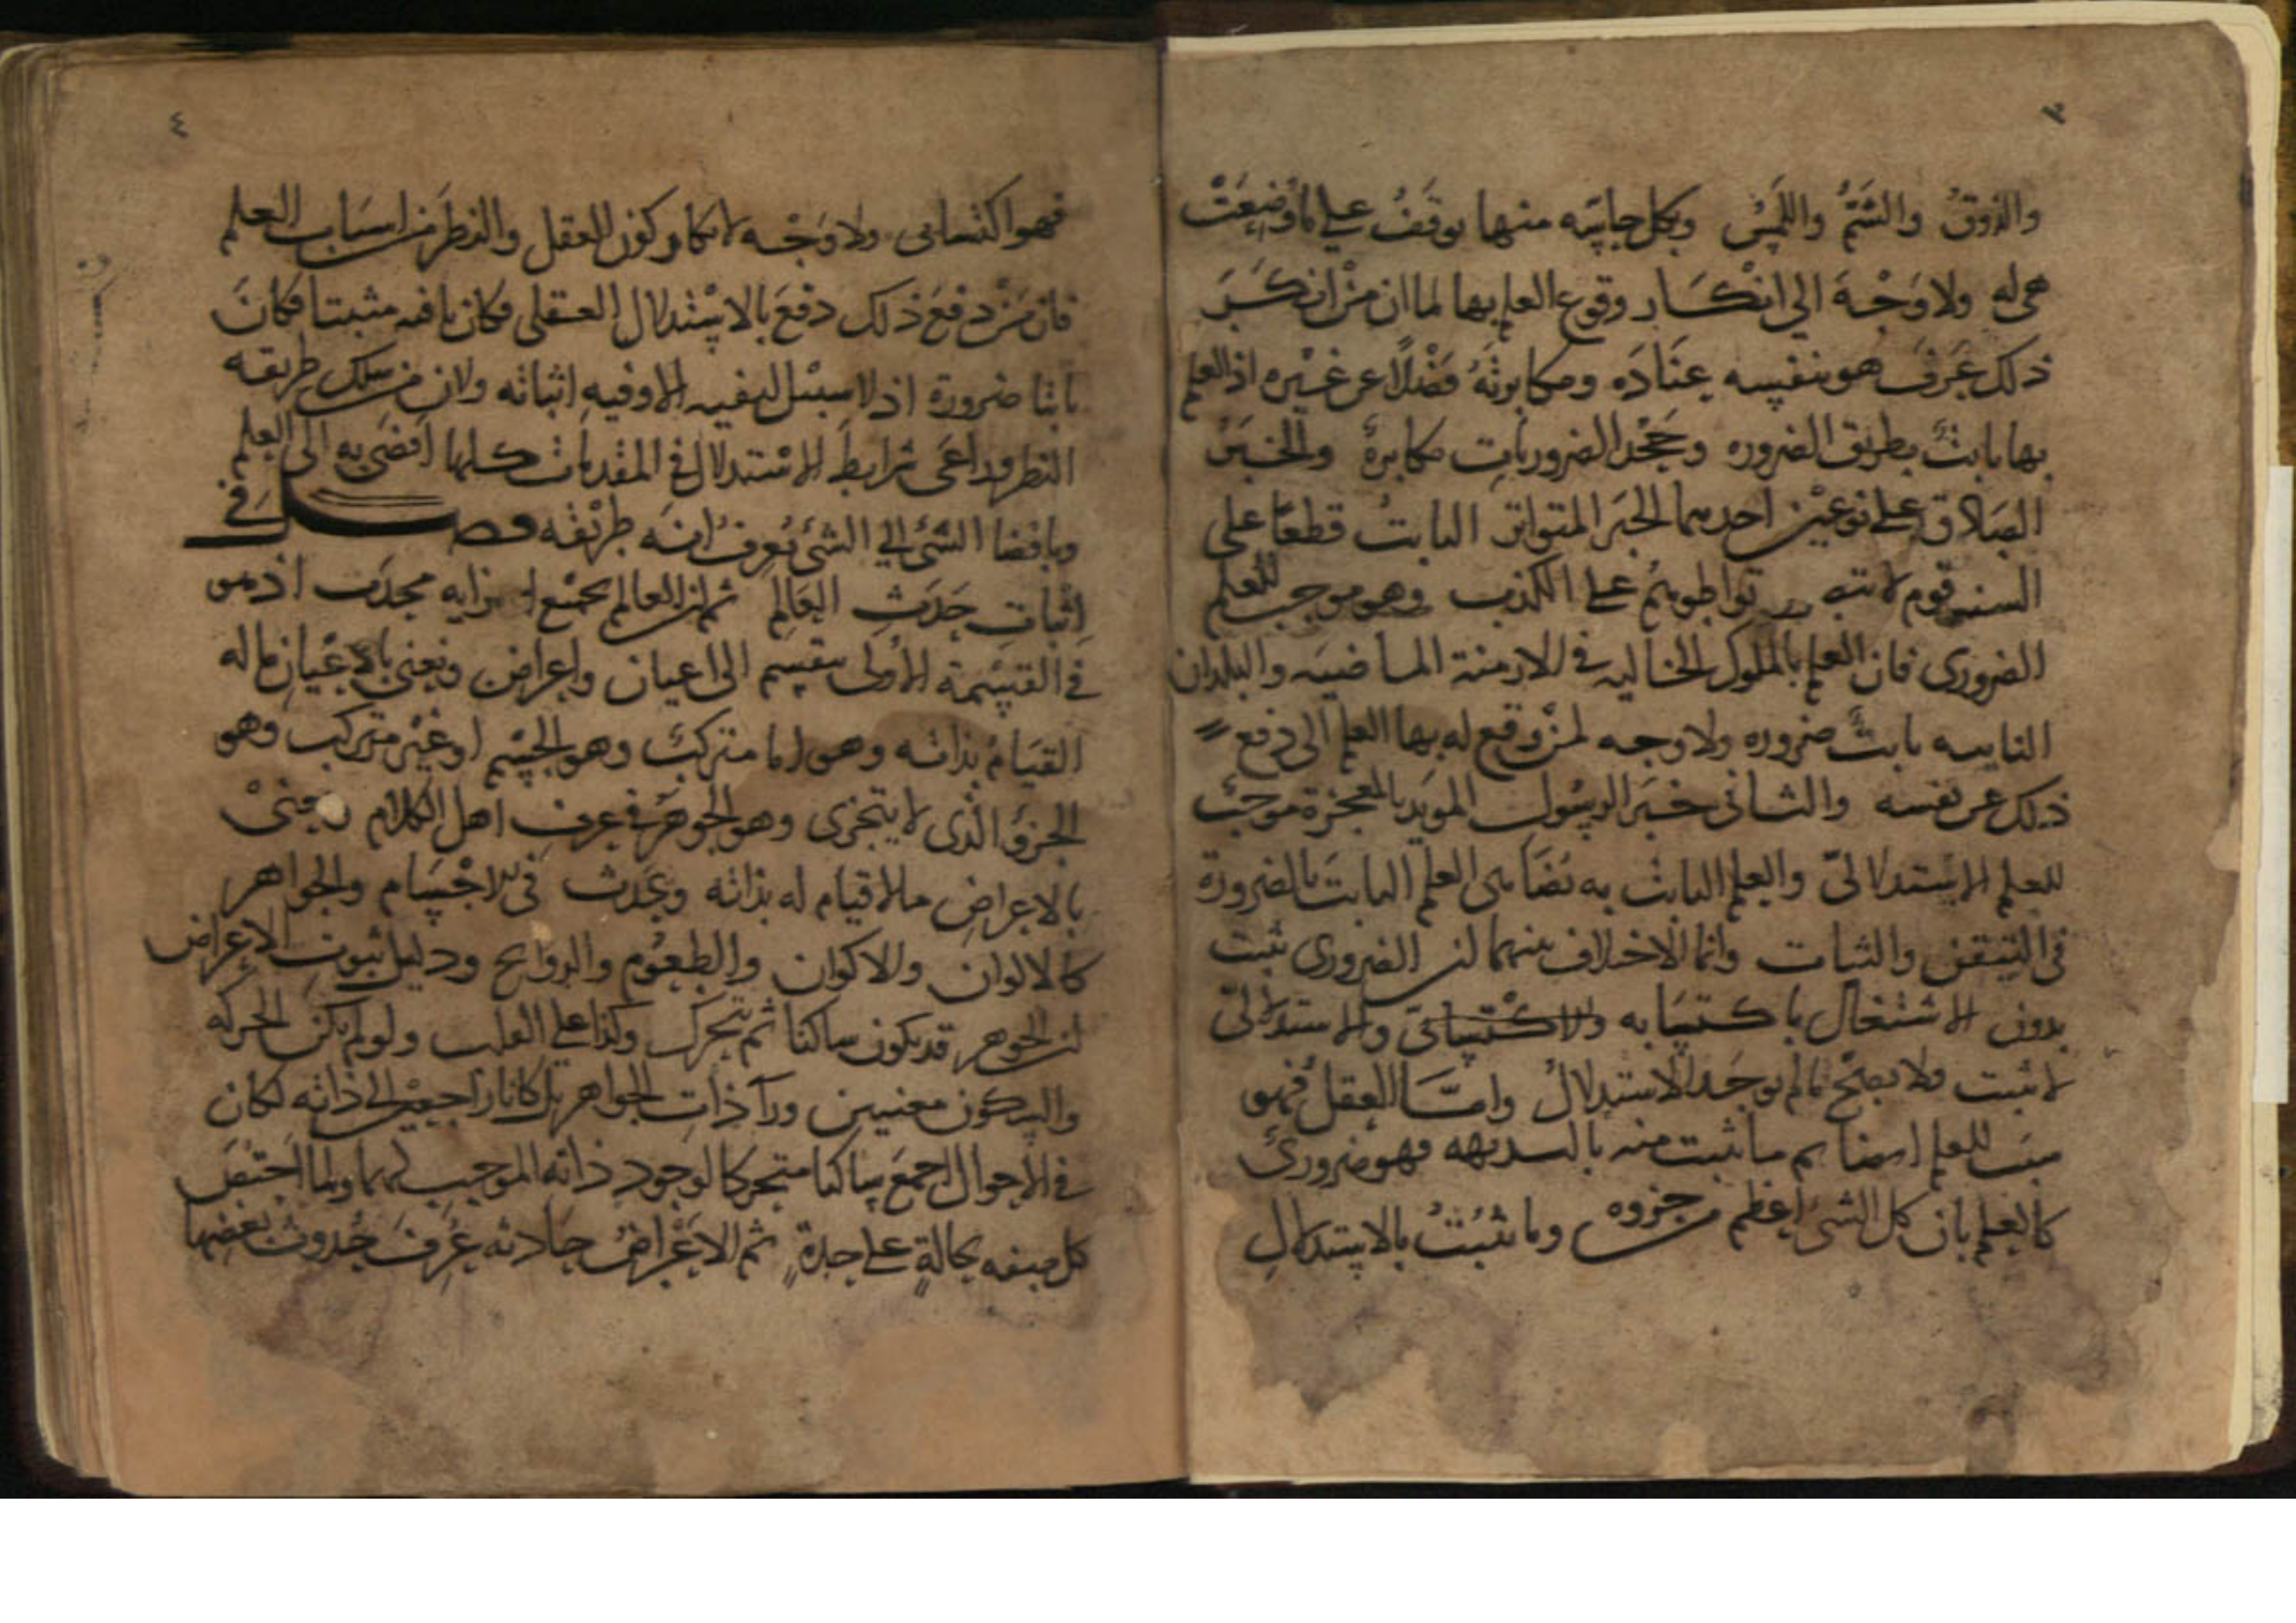 ٣
والذوق والشَمُّ واللمس وبكل حاسّة منها يوقَفُ على ما وُضِعَتْ
هى له ولا وَجْهَ الى انكَار وقوع العلم بها لما ان مَنْ انكَرَ
ذلك عَرَفَ هو بنفسه عنَادَه ومكابرتَهُ فضْلًا عن غيْره اذ العلم
بها ثابتٌ بطريق الضروره وجَحْد الضروريات مكابرةٌ والخبَرُ
الصادق على نوعين احدهما الخبر المتواتر الثابتُ قطعًا على
السنه قوم لا تواطوهُم على الكذب وهو موجب للعلم
الضرورى فان العلم بالملوك الخاليه فى الازمنة الماضيه والبلدان
النايه ثابتٌ ضروره ولا وجه لمنْ وقع له بها العلم الى دفع
ذلك عن نفسه والثانى خبَر الرسُول المويَد بالمعجزة موجبٌ
للعلم الاستدلالىّ والعلم الثابت به يُضَاهى العلم الثابت بالضرورة
فى التيقن والثبات وانما الاختلاف بينهما ان الضرورى ثبت
بدون الاشتغال باكتسَابه والاكتسابىّ والاستدلالىّ
لا ثبت ولا يصحّ ما لم يوجَد الاستدلالُ وامَّا العقل فهو
سبَب للعلم ايضا ثم ما ثبت منه بالبديهه فهو ضرورىٌ
كالعلم بان كل الشئ اعظم من جزوه وما ثبُتُ بالاستدلالِ
٤
فهو اكتسابى ولا وَجْه لانكار كون العقل والنظر من اسباب العلم
فان مَنْ دفعَ ذلك دفعَ بالاسْتدلال العقلى فكان نافيه مثبتا فكانَ
ثابتا ضرورة اذ لا سبيل لنفيه الا وفيهِ اثباته ولان من سلك طريقه
النظر وراعَى شرايط الاستدلال فى المقدمات كلها افضَى به الى العلم
وبافضا الشئ الى الشئ يُعرفُ انه طريقُه فصل فى
اثبات حَدَث العَالم ثم ان العالم بجميْع اجزايه محدَث اذ هو
فى القِسْمة الاُولى ينقسم الى اعيان واعراض ونعنى بالاعْيان ما له
القيَامُ بذاته وهو اما متركبٌ وهو الجسْم او غيْر متركب وهو
الجزؤ الذى لا يتجزى وهو الجوهَر فى عرف اهل الكلام ونعنىْ
بالاعراضِ ما لا قيام له بذاته ويحدث فى الاجْسَام والجواهر
كالالوان والاكوان والطعُوم والروَايح ودليل ثبوتِ الاعراض
ان الجوهر قد يكون ساكنا ثم يتحرك وكذا على القلب ولو لم يكن الحركه
والسكون معنيين ورآ ذات الجواهر بل كانا راجعين الى ذاته لكان
فى الاحوال اجمعَ ساكنا متحركا لوجود ذاته الموجب لهما ولما اختصَّ
كل صفه بحالةٍ على حدةٍ ثم الاعْراضُ حَادثه عُرِفَ حُدوث بعْضِها